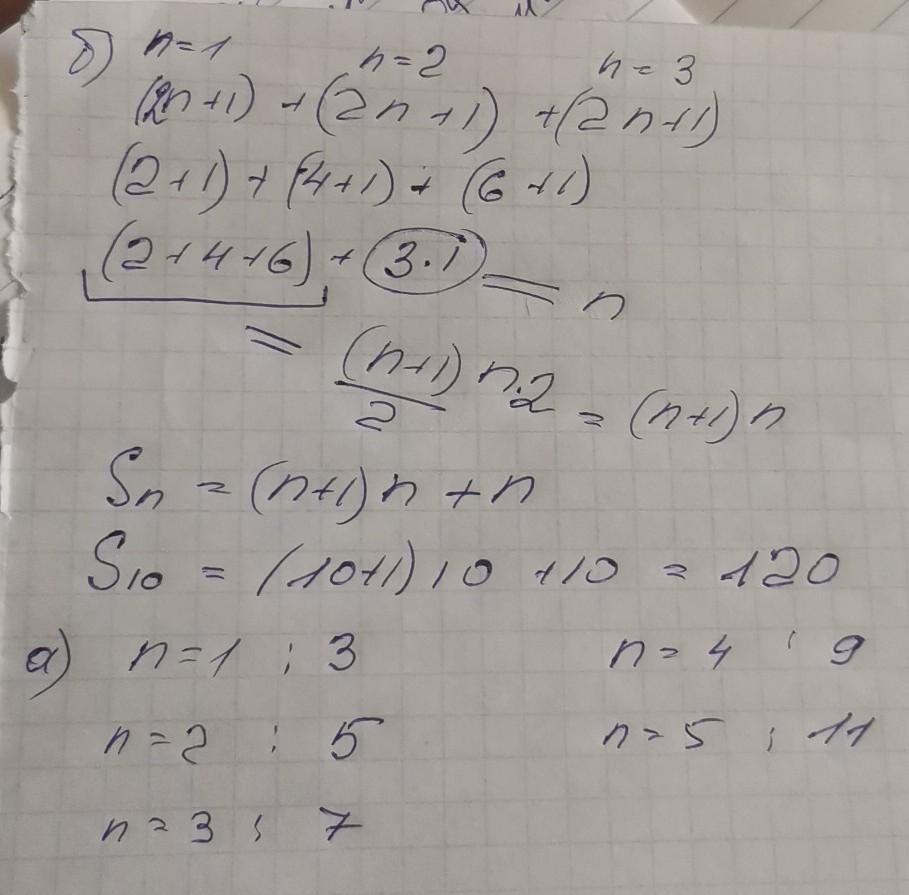 б) n=1 n=2 n=3
(2n+1) + (2n+1) + (2n+1)
(2+1) + (4+1) + (6+1)
(2+4+6) + (3·1) = n
= (n+1)/2 n·2 = (n+1)n
Sn = (n+1)n + n
S10 = (10+1)10 + 10 = 120
а) n=1 ; 3 n=4 ; 9
n=2 ; 5 n=5 ; 11
n=3 ; 7